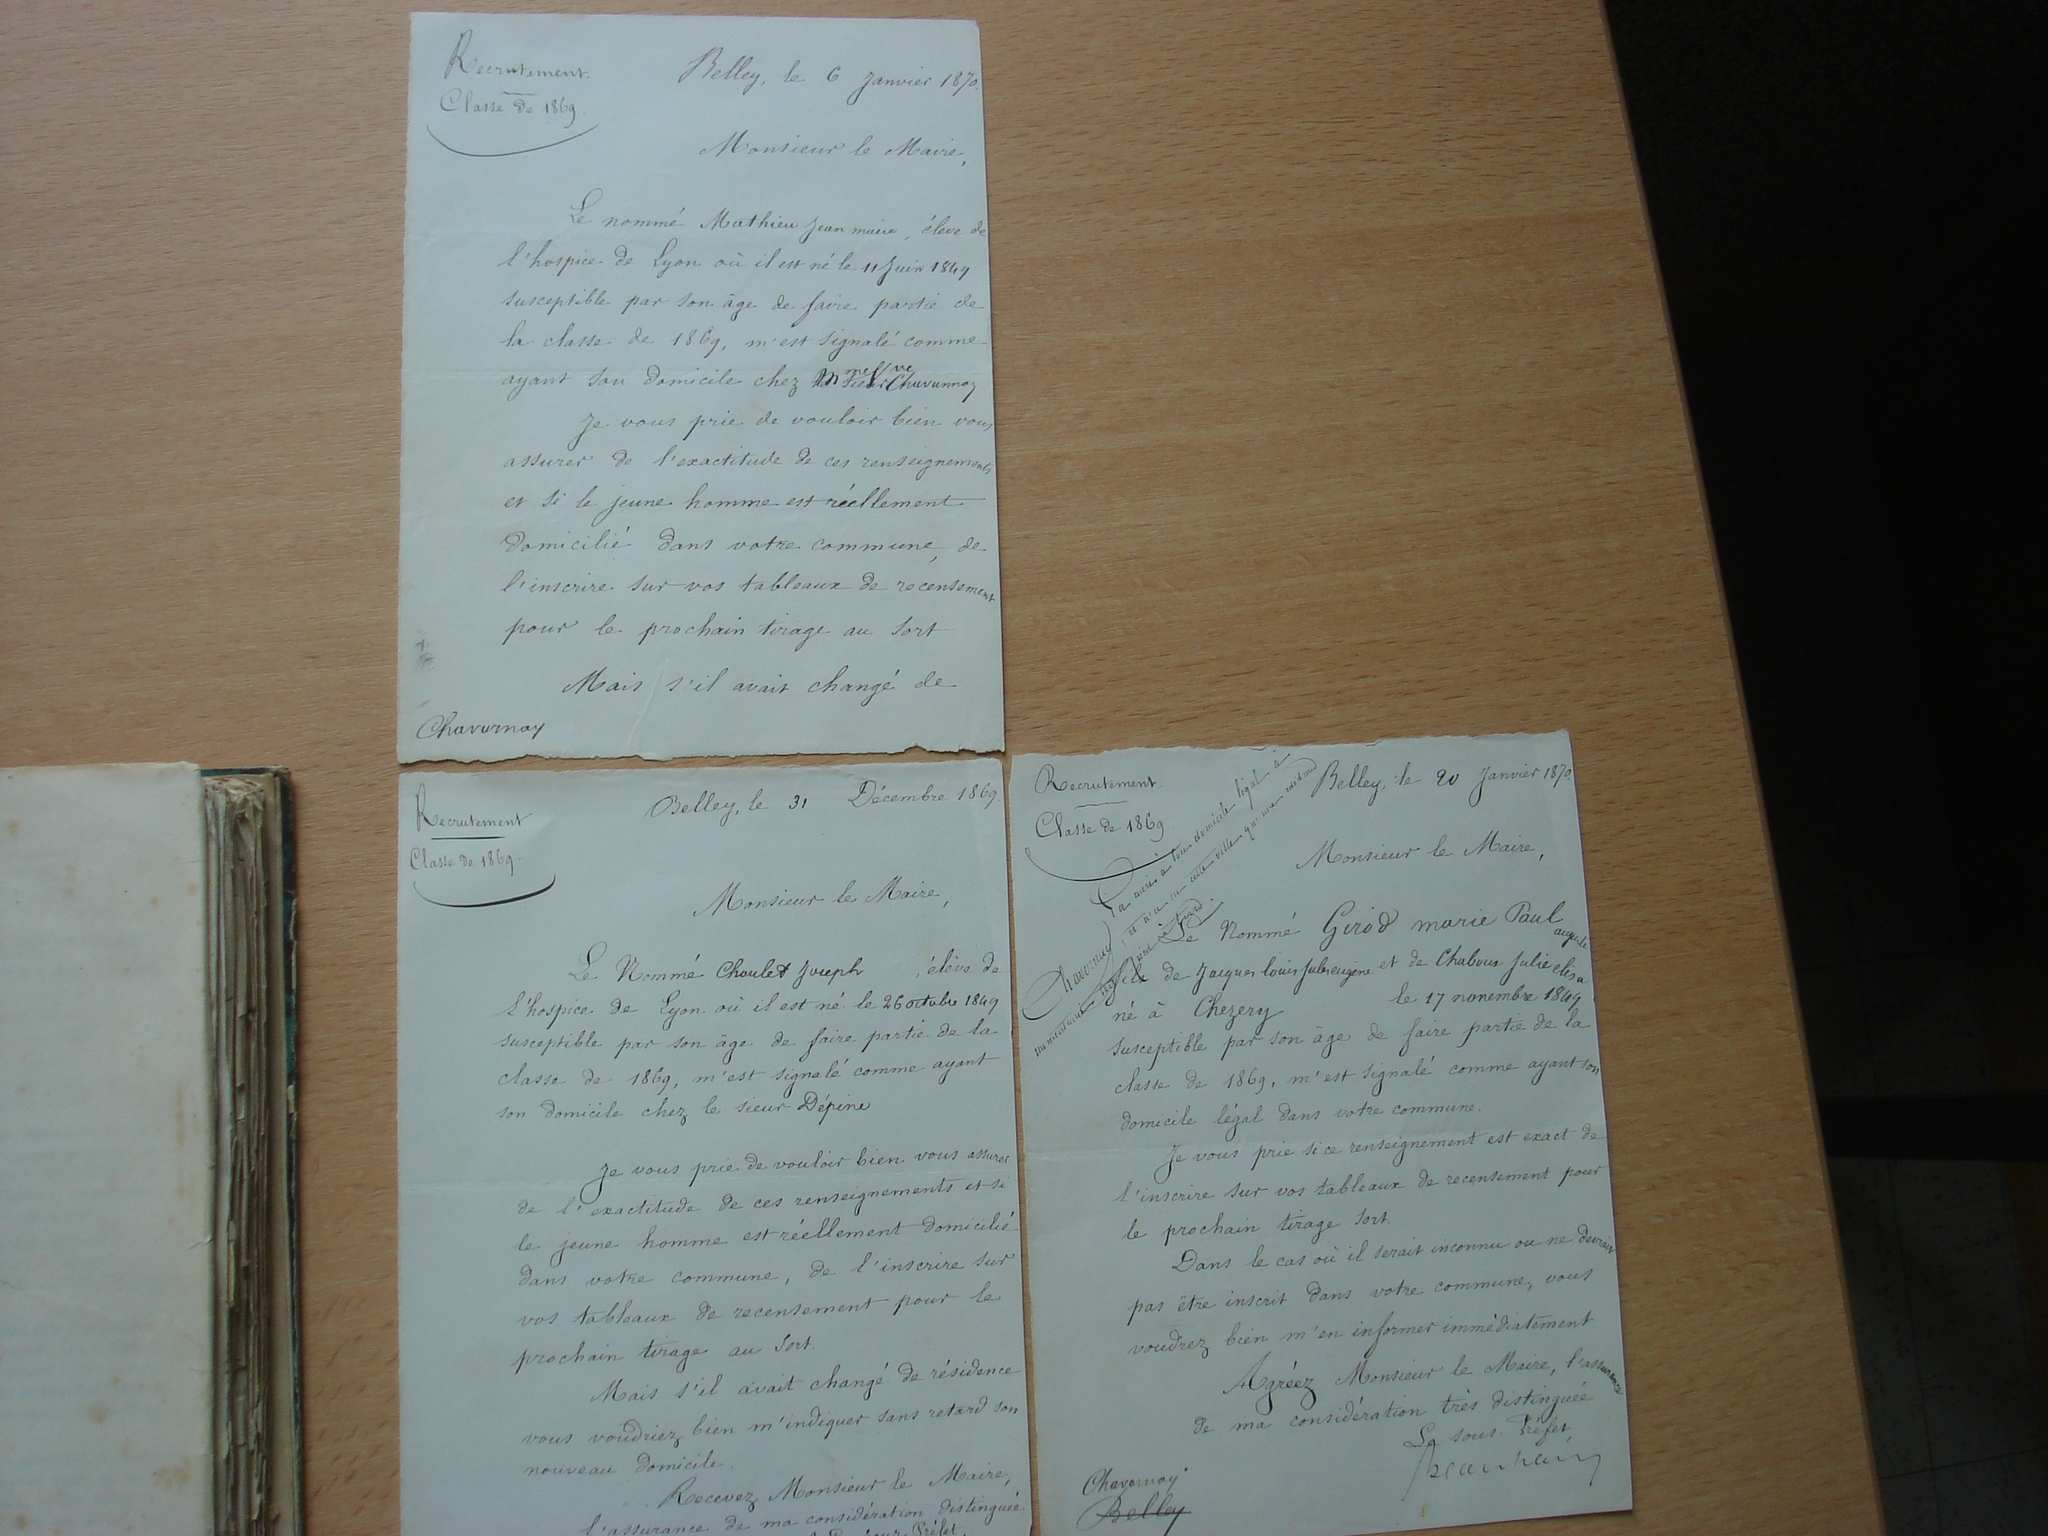 Recrutement.
Classe de 1869
Belley, le 6 Janvier 1870.
Monsieur le Maire,
Le nommé Mathieu Jean marie, élève de
l'hospice de Lyon où il est né le 11 Juin 1849
susceptible par son âge de faire partie de
la classe de 1869, m'est signalé comme
ayant son domicile chez
Je vous prie de vouloir bien vous
assurer de l'exactitude de ces renseignements
et si le jeune homme est réellement
domicilié dans votre commune, de
l'inscrire sur vos tableaux de recensement
pour le prochain tirage au sort
Mais s'il avait changé de
Chavornay
Recrutement
Classe de 1869.
Belley, le 31 Décembre 1869.
Monsieur le Maire,
Le Nommé Choulet Joseph, élève de
l'hospice de Lyon où il est né le 26 octobre 1849
susceptible par son âge de faire partie de la
classe de 1869, m'est signalé comme ayant
son domicile chez le sieur Dépine
Je vous prie de vouloir bien vous assurer
de l'exactitude de ces renseignements et si
le jeune homme est réellement domicilié
dans votre commune, de l'inscrire sur
vos tableaux de recensement pour le
prochain tirage au sort.
Mais s'il avait changé de résidence
vous voudriez bien m'indiquer sans retard son
nouveau domicile.
Recevez Monsieur le Maire,
l'assurance de ma considération distinguée
Recrutement.
Classe de 1869
Belley, le 20 Janvier 1870.
son domicile légal à
cette ville
Monsieur le Maire,
Le Nommé Girod marie Paul auguste
fils de Jacques Louis Jules eugène et de Chabous Julie elisa
né à Chezery le 17 novembre 1849
susceptible par son âge de faire partie de la
classe de 1869, m'est signalé comme ayant son
domicile légal dans votre commune.
Je vous prie si ce renseignement est exact de
l'inscrire sur vos tableaux de recensement pour
le prochain tirage sort
Dans le cas où il serait inconnu ou ne devrait
pas être inscrit dans votre commune, vous
voudrez bien m'en informer immédiatement
Agréez Monsieur le Maire, l'assurance
de ma considération très distinguée
Le sous-Préfet,
Chavornay
Belley